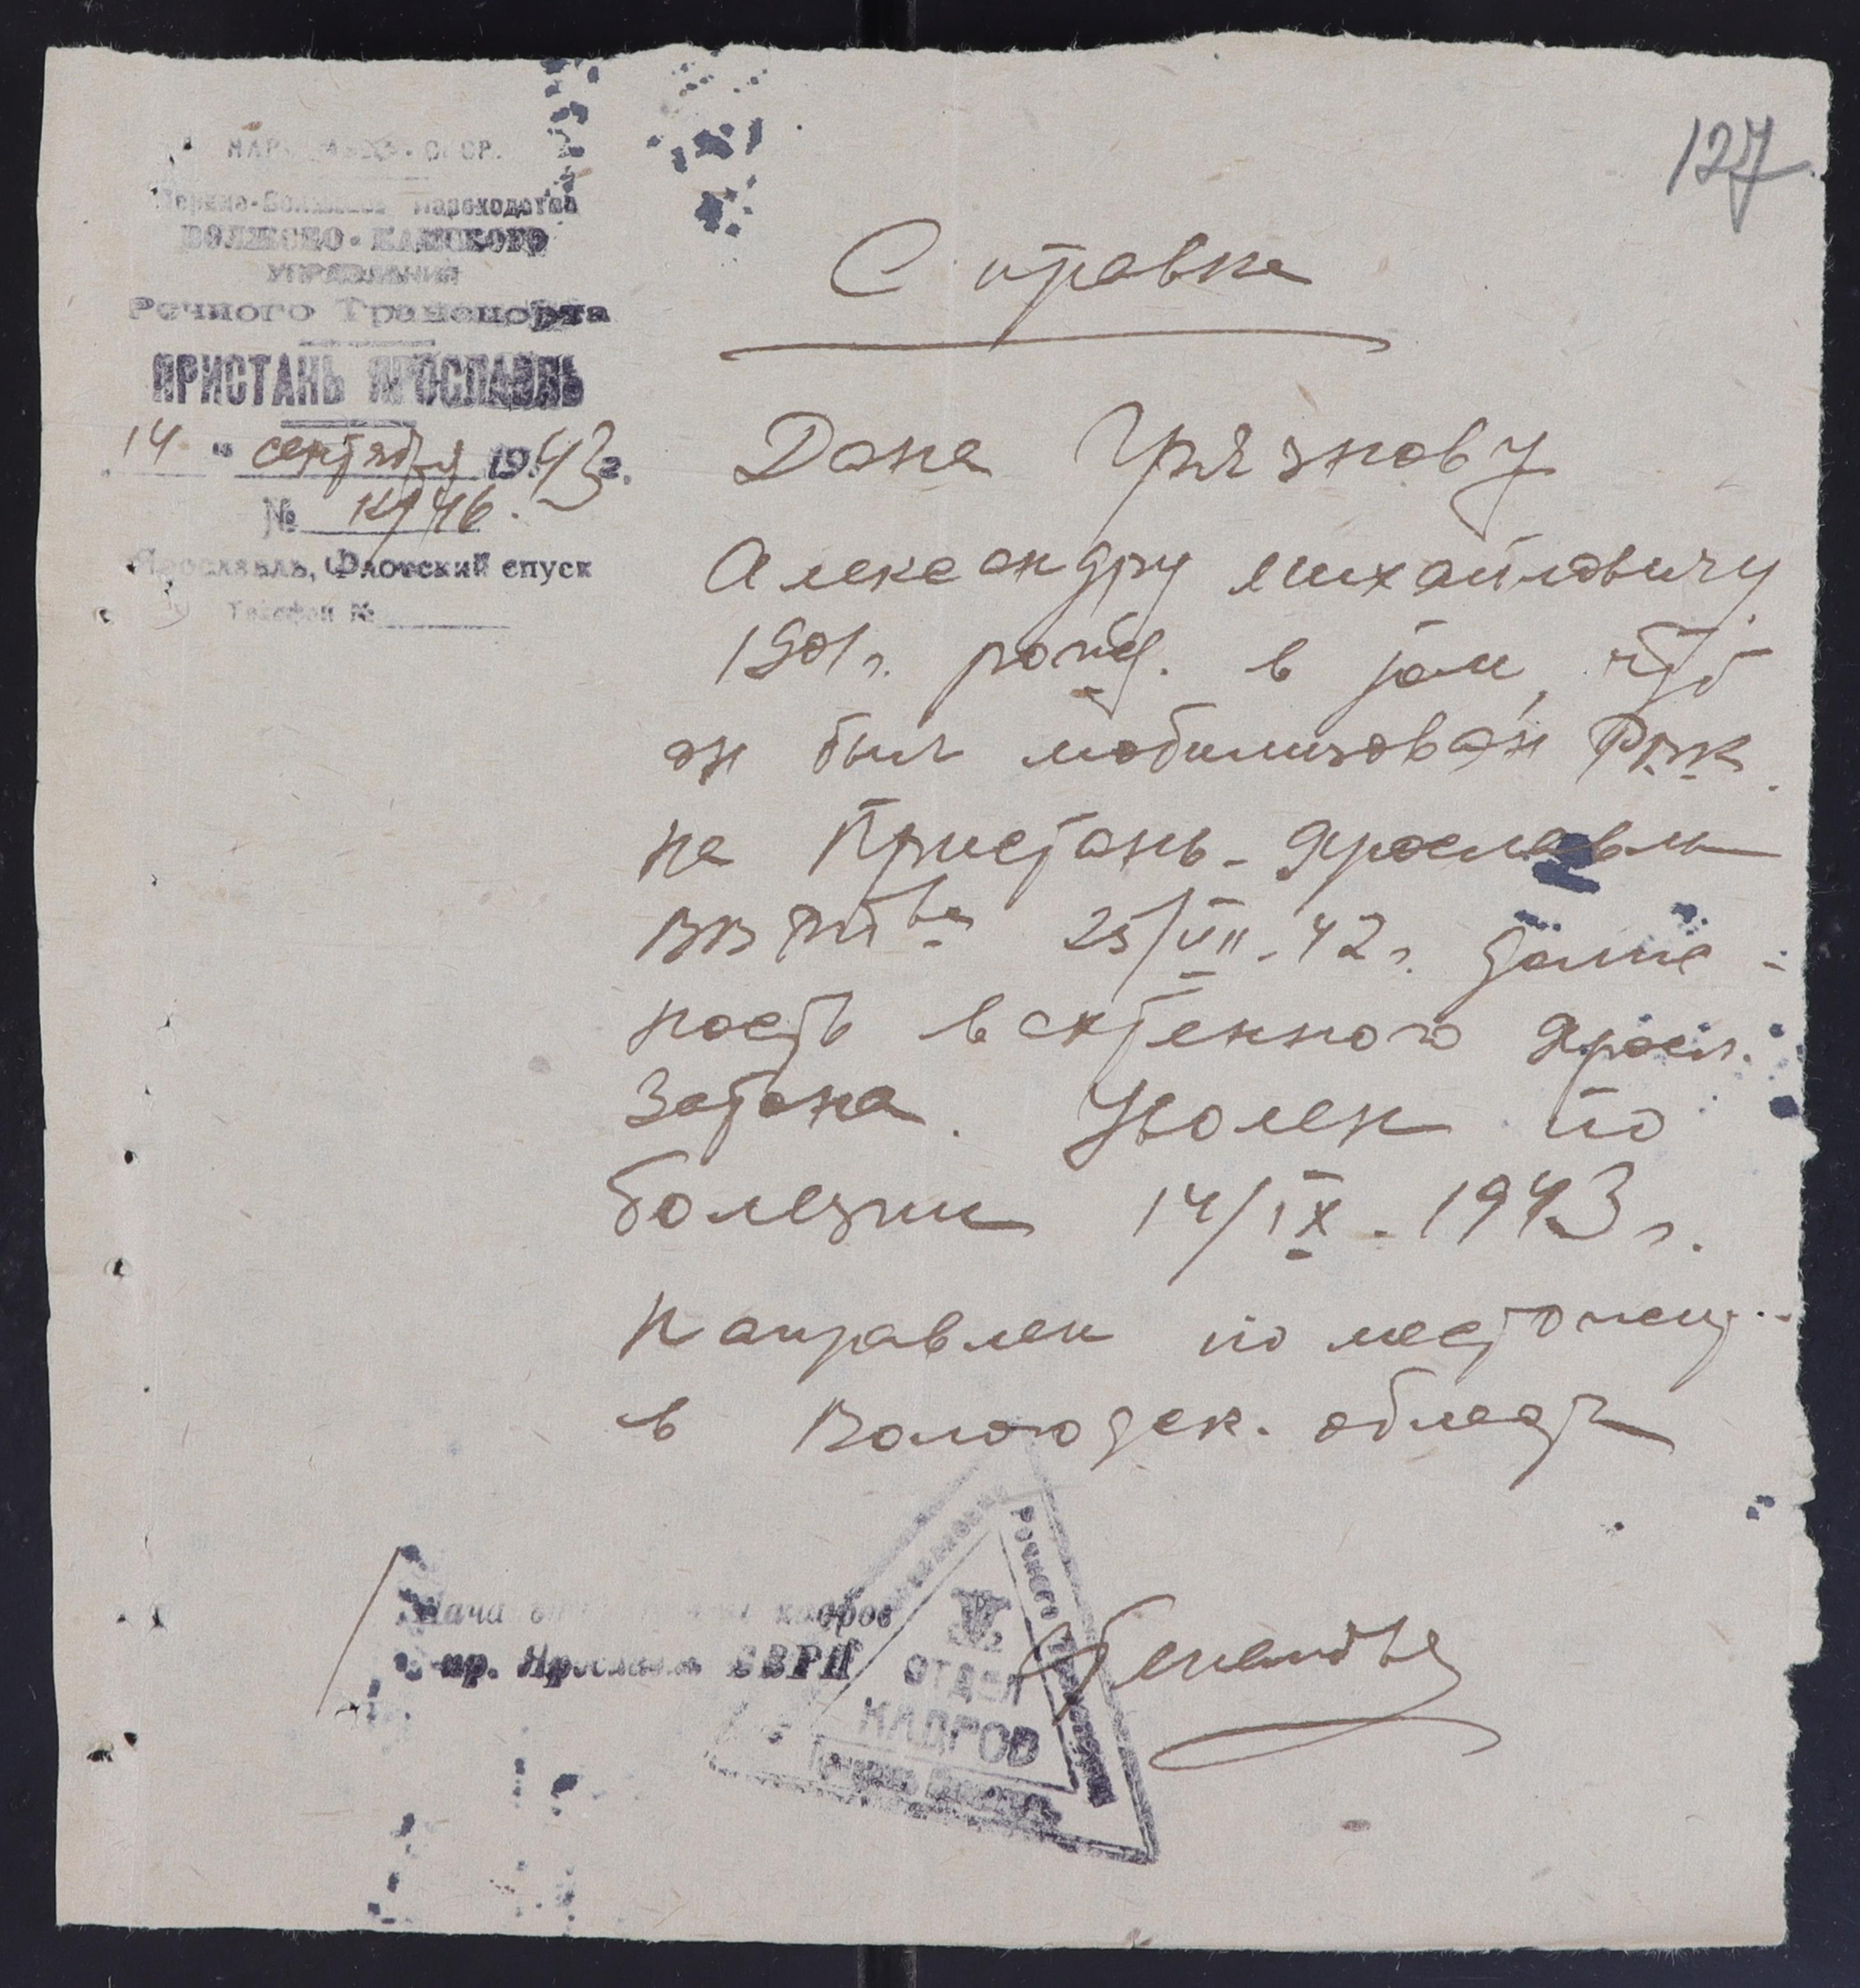 127
Пароходства
ВОЛЖСКО-КАМСКОГО
УПРАВЛЕНИЯ
Речного Транспорта
ПРИСТАНЬ ЯРОСЛАВЛЬ
14 " сентября 1943 г.
№
Ярославль, Флотский спуск
Телефон №
Справка
Дана Грязнову
Александру Михайловичу
1901 г. рожд. в том, что
он был мобилизован РВК
на Пристань-Ярославль
ВВРП 25/VII-42 г. долж-
ность Яросл.
Затона. Уволен по
болезни 14/IX-1943 г.
Направлен по
в Вологодск. область
кадров
пр. Ярославль ВВРП
Речного
ОТДЕЛ
КАДРОВ